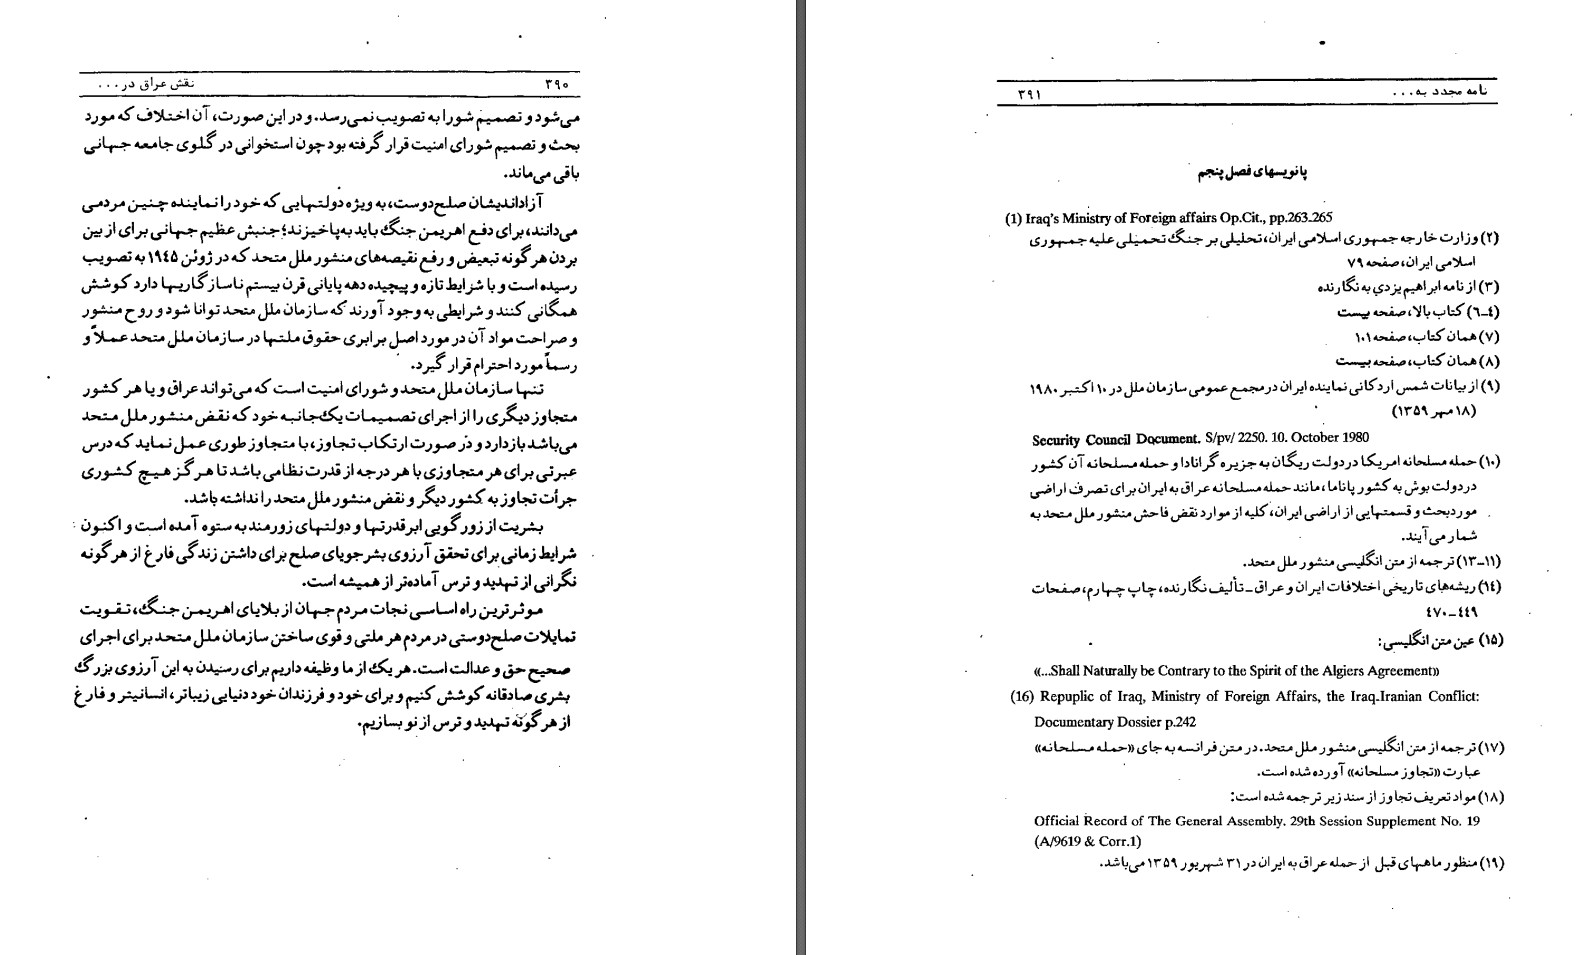 ۳۹۰ نقش عراق در...
می‌شود و تصمیم شورا به تصویب نمی‌رسد. و در این صورت، آن اختلاف که مورد
بحث و تصمیم شورای امنیت قرار گرفته بود چون استخوانی در گلوی جامعه جهانی
باقی می‌ماند.
آزاداندیشان صلح‌دوست، به ویژه دولتهایی که خود را نماینده چنین مردمی
می‌دانند، برای دفع اهریمن جنگ باید به‌پاخیزند؛ جنبش عظیم جهانی برای از بین
بردن هر گونه تبعیض و رفع نقیصه‌های منشور ملل متحد که در ژوئن ۱۹٤۵ به تصویب
رسیده است و با شرایط تازه و پیچیده دهه پایانی قرن بیستم ناسازگاریها دارد کوشش
همگانی کنند و شرایطی به وجود آورند که سازمان ملل متحد توانا شود و روح منشور
و صراحت مواد آن در مورد اصل برابری حقوق ملتها در سازمان ملل متحد عملاً و
رسماً مورد احترام قرار گیرد.
تنها سازمان ملل متحد و شورای امنیت است که می‌تواند عراق و یا هر کشور
متجاوز دیگری را از اجرای تصمیمات یک‌جانبه خود که نقض منشور ملل متحد
می‌باشد بازدارد و در صورت ارتکاب تجاوز، با متجاوز طوری عمل نماید که درس
عبرتی برای هر متجاوزی با هر درجه از قدرت نظامی باشد تا هرگز هیچ کشوری
جرأت تجاوز به کشور دیگر و نقض منشور ملل متحد را نداشته باشد.
بشریت از زورگویی ابرقدرتها و دولتهای زورمند به ستوه آمده است و اکنون
شرایط زمانی برای تحقق آرزوی بشر جویای صلح برای داشتن زندگی فارغ از هرگونه
نگرانی از تهدید و ترس آماده‌تر از همیشه است.
موثرترین راه اساسی نجات مردم جهان از بلایای اهریمن جنگ، تقویت
تمایلات صلح‌دوستی در مردم هر ملتی و قوی ساختن سازمان ملل متحد برای اجرای
صحیح حق و عدالت است. هر یک از ما وظیفه داریم برای رسیدن به این آرزوی بزرگ
بشری صادقانه کوشش کنیم و برای خود و فرزندان خود دنیایی زیباتر، انسانیتر و فارغ
از هر گونه تهدید و ترس از نو بسازیم.
نامه مجدد به... ۳۹۱
پانویسهای فصل پنجم
(1) Iraq's Ministry of Foreign affairs Op.Cit., pp.263-265
(۲) وزارت خارجه جمهوری اسلامی ایران، تحلیلی بر جنگ تحمیلی علیه جمهوری
اسلامی ایران، صفحه ۷۹
(۳) از نامه ابراهیم یزدی به نگارنده
(٤-٦) کتاب بالا، صفحه بیست
(۷) همان کتاب، صفحه ۱۰۱
(۸) همان کتاب، صفحه بیست
(۹) از بیانات شمس اردکانی نماینده ایران در مجمع عمومی سازمان ملل در ۱۰ اکتبر ۱۹۸۰
(۱۸ مهر ۱۳۵۹)
Security Council Document. S/pv/ 2250. 10. October 1980
(۱۰) حمله مسلحانه امریکا در دولت ریگان به جزیره گرانادا و حمله مسلحانه آن کشور
در دولت بوش به کشور پاناما، مانند حمله مسلحانه عراق به ایران برای تصرف اراضی
مورد بحث و قسمتهایی از اراضی ایران، کلیه از موارد نقض فاحش منشور ملل متحد به
شمار می‌آیند.
(۱۱-۱۳) ترجمه از متن انگلیسی منشور ملل متحد.
(۱٤) ریشه‌های تاریخی اختلافات ایران و عراق - تألیف نگارنده، چاپ چهارم، صفحات
٤٤۹-٤۷۰
(۱۵) عین متن انگلیسی:
«...Shall Naturally be Contrary to the Spirit of the Algiers Agreement»
(16) Repuplic of Iraq, Ministry of Foreign Affairs, the Iraq-Iranian Conflict:
Documentary Dossier p.242
(۱۷) ترجمه از متن انگلیسی منشور ملل متحد. در متن فرانسه به جای «حمله مسلحانه»
عبارت «تجاوز مسلحانه» آورده شده است.
(۱۸) مواد تعریف تجاوز از سند زیر ترجمه شده است:
Official Record of The General Assembly. 29th Session Supplement No. 19
(A/9619 & Corr.1)
(۱۹) منظور ماههای قبل از حمله عراق به ایران در ۳۱ شهریور ۱۳۵۹ می‌باشد.